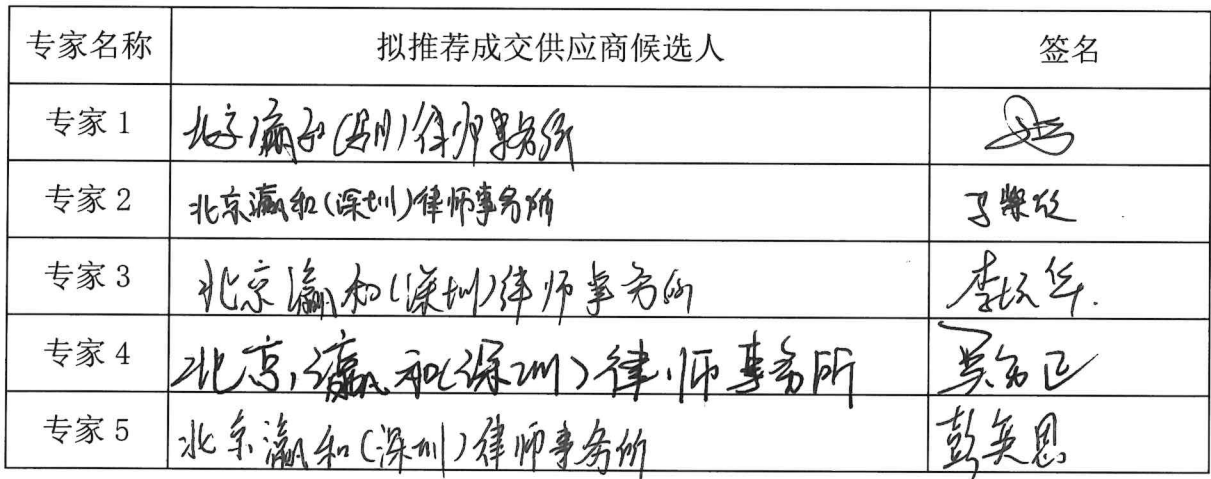 专家名称 拟推荐成交供应商候选人 签名
专家1 北京瀛和(深圳)律师事务所
专家2 北京瀛和(深圳)律师事务所
专家3 北京瀛和(深圳)律师事务所
专家4 北京瀛和(深圳)律师事务所
专家5 北京瀛和(深圳)律师事务所 彭英恩